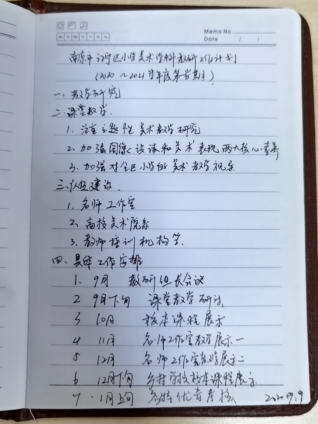 Memo No
Date / /
南京市江宁区小学美术学科教研工作计划
(2020~2021学年度第一学期)
一、教学研究
二、课堂教学
1、注重主题性美术教学研究
2、加强图像识读和美术表现两大核心素养
3、加强对全区小学的美术教学视导
三、队伍建设
1、名师工作室
2、高校美术院系
3、教师培训机构等
四、具体工作安排
1、9月 教研组长会议
2、9月下旬 课堂教学研讨
3 10月 校本课程展示
4 11月 名师工作室教学展示一
5 12月 名师工作室教学展示二
6 12月下旬 乡村学校校本课程展示
7、1月上旬
2020.9.9